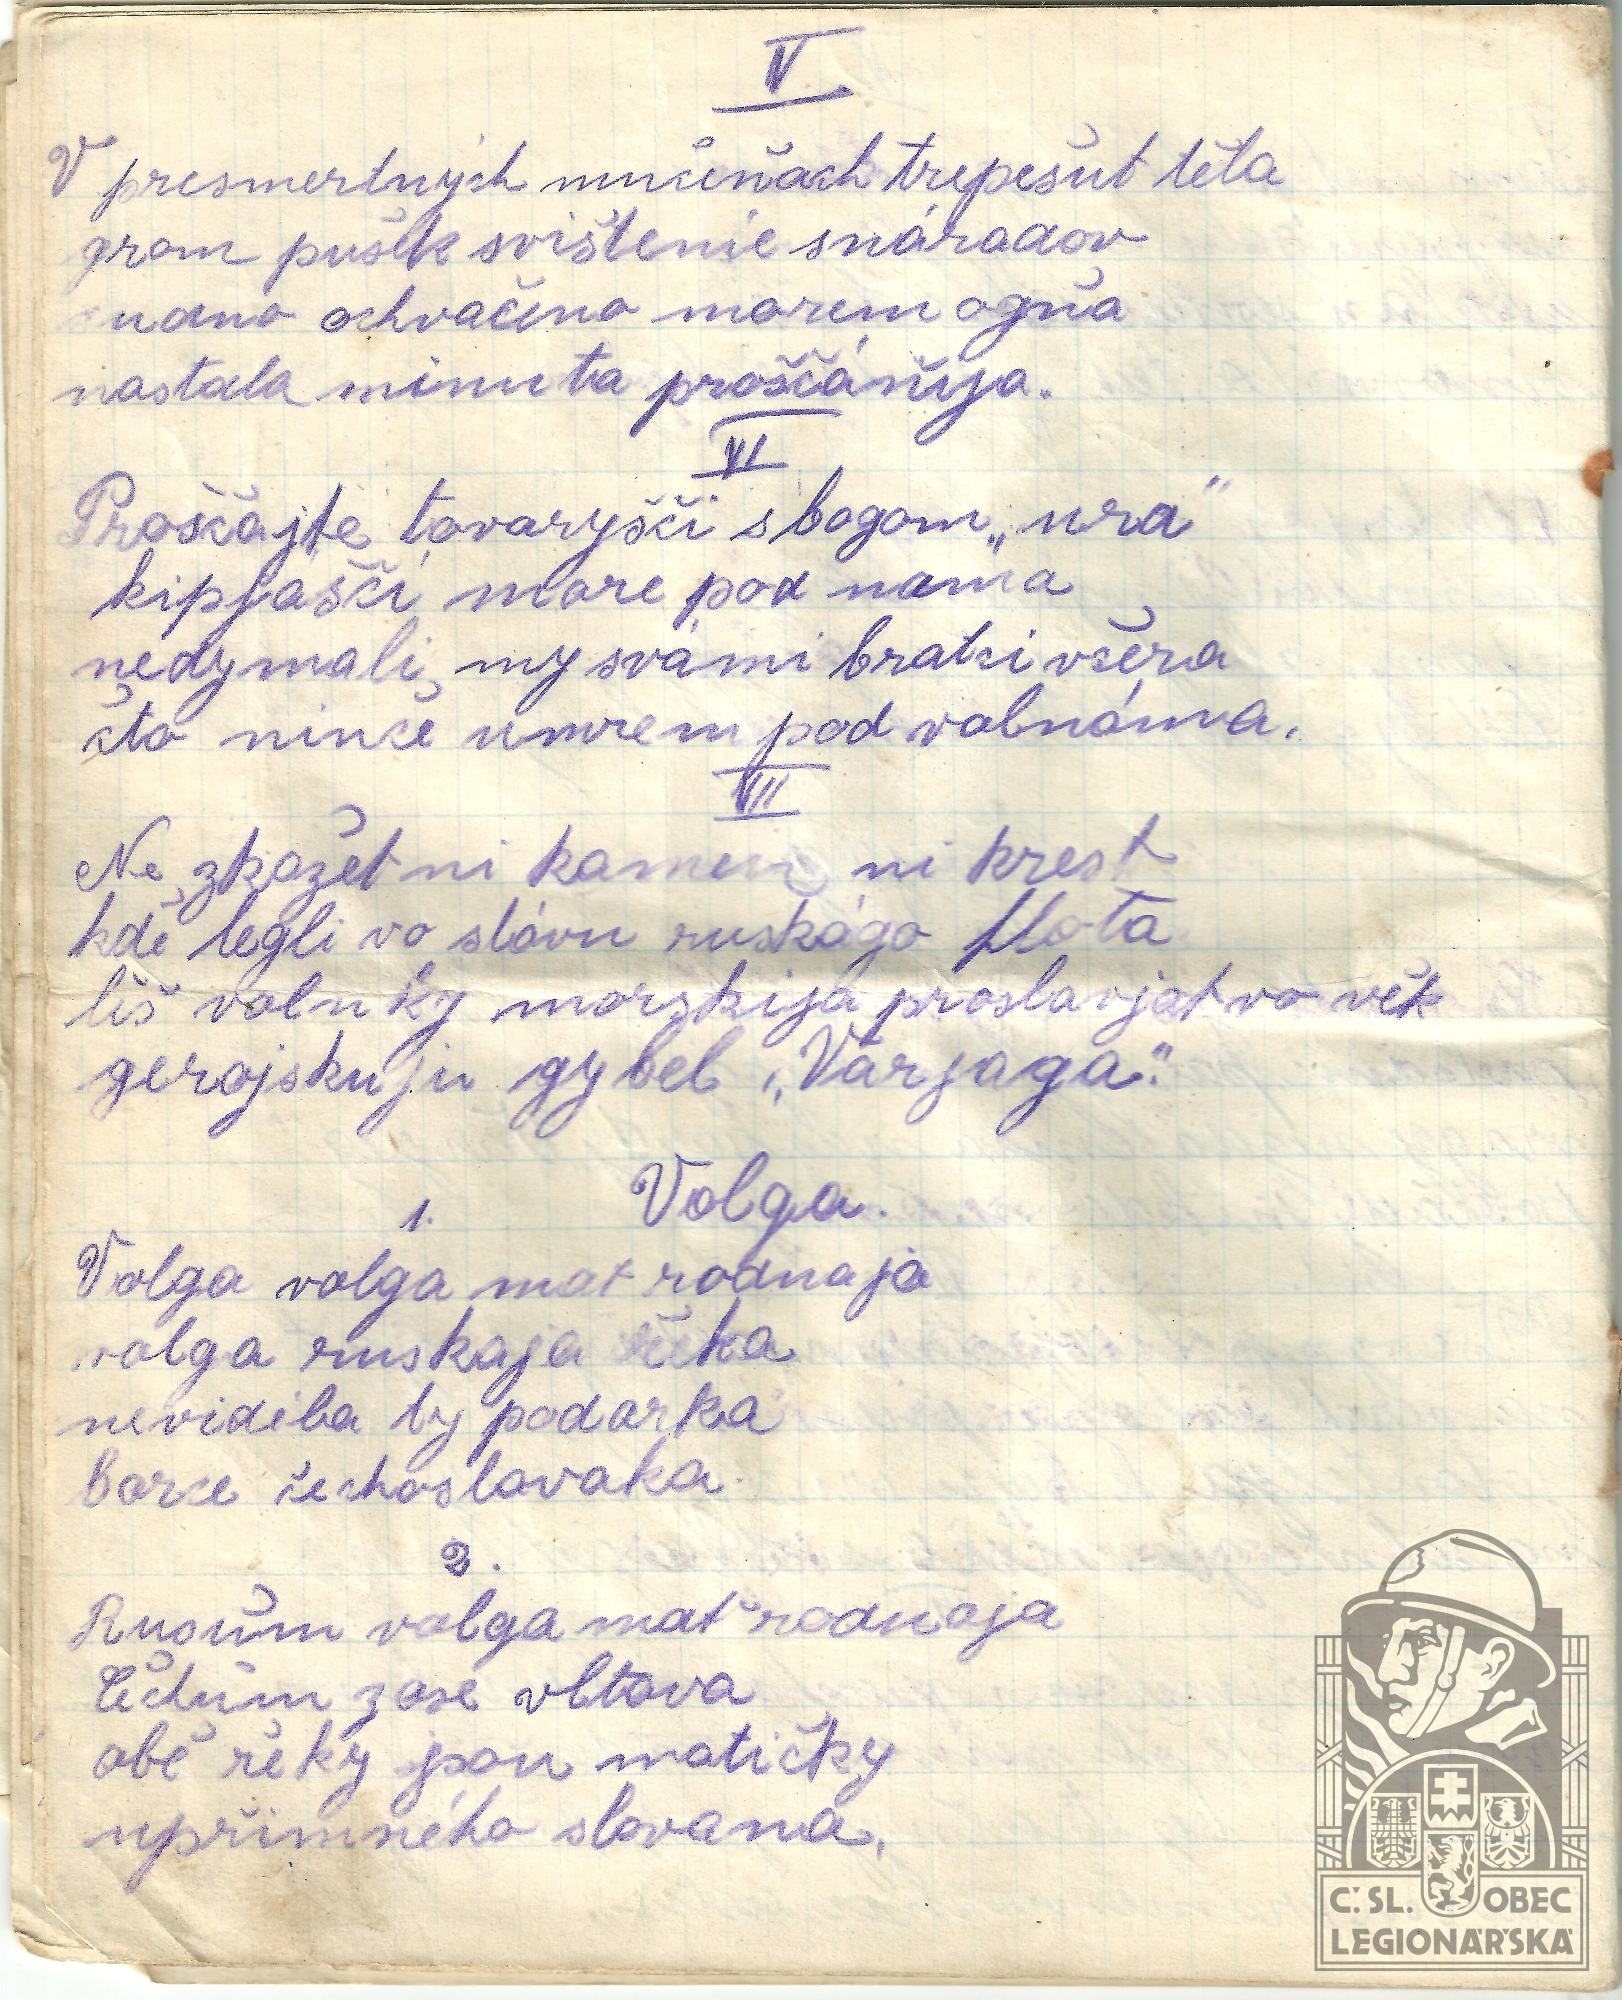 V
V presmertných mučeňach trepešut těla
grom pušek svištenie snáradov
udno ochvačeno morem ogňa
nastala minuta proščáňija.
VI
Proščajtě tovaryšči s bogom „ura"
kipjášči more pod nama
nedymali my svámi bratci včera
čto ninče umrem pod volnáma.
VII
Ne zkažet ni kameň ni krest
kdě legli vo slávu ruskágo flota
liš volnky morskija proslavjat vo věk
gerojskuju gybel „Varjaga".
Volga.
1.
Volga volga mat rodnaja
volga ruskaja řeka
neviděla ty podarka
borce čechoslovaka.
2.
Rusům volga mať rodnaja
Čechům zase vltava
obě řeky jsou matičky
upřimného slovana.
Č. SL. OBEC
LEGIONÁŘSKÁ